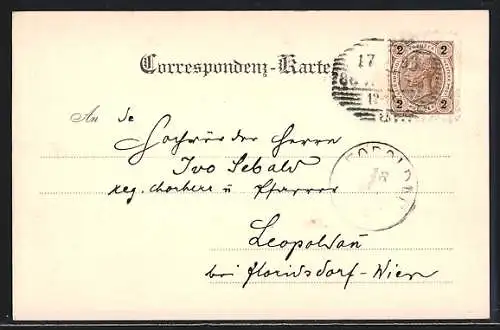 Correspondenz-Karte
2 2
2 2
17
88
12
An Se
Hochwürden Herrn
Ivo Sebald
reg. Chorherr u Pfarrer
Leopoldau
bei Floridsdorf-Wien